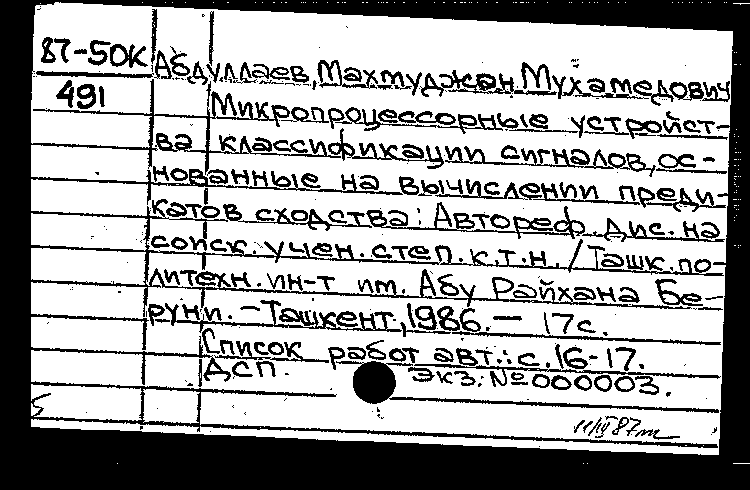 87-50К Абдуллаев, Махмуджан Мухамедович
491 Микропроцессорные устройст-
ва классификации сигналов, ос-
нованные на вычислении преди-
катов сходства: Автореф. дис. на
соиск. учен. степ. к.т.н. / Ташк. по-
литехн. ин-т им. Абу Райхана Бе-
руни. – Ташкент, 1986. – 17 с.
Список работ авт.: с. 16-17.
ДСП. Экз. № 000003.
11/III 87